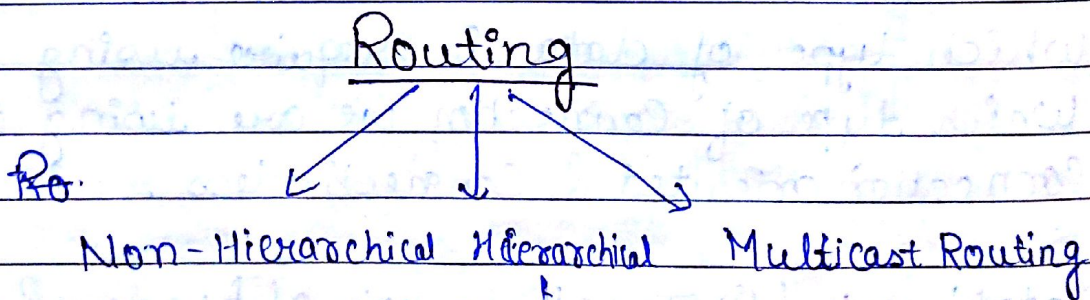 Routing
Ro.
Non-Hierarchical Hierarchical Multicast Routing